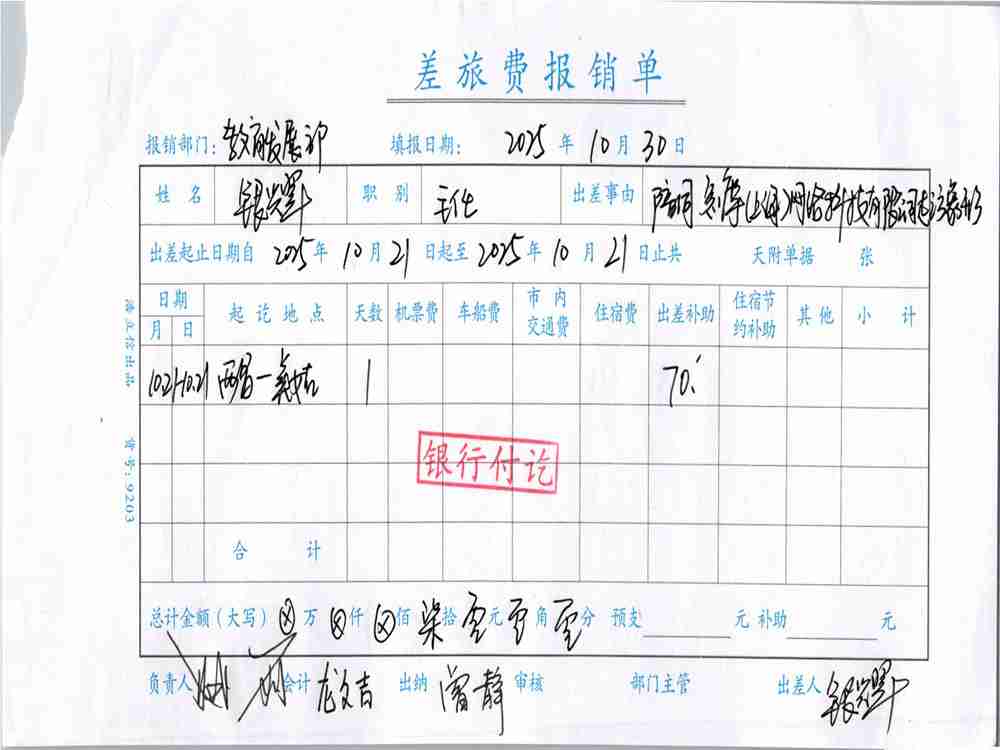 差旅费报销单
报销部门：教育发展部 填报日期： 2025 年 10 月 30 日
姓名 银光军 职别 主任 出差事由 陪同 (上海)网络科技有限公司
出差起止日期自 2025 年 10 月 21 日起至 2025 年 10 月 21 日止共 天附单据 张
日期 起讫地点 天数 机票费 车船费 市内交通费 住宿费 出差补助 住宿节约补助 其他 小计
月 日
10.21-10.21 西昌— 1 70.
银行付讫
合计
总计金额(大写) ⊗ 万 ⊗ 仟 ⊗ 佰 柒 拾 零 元 零 角 零 分 预支 元 补助 元
负责人 会计 龙文吉 出纳 曾静 审核 部门主管 出差人
货号：9203